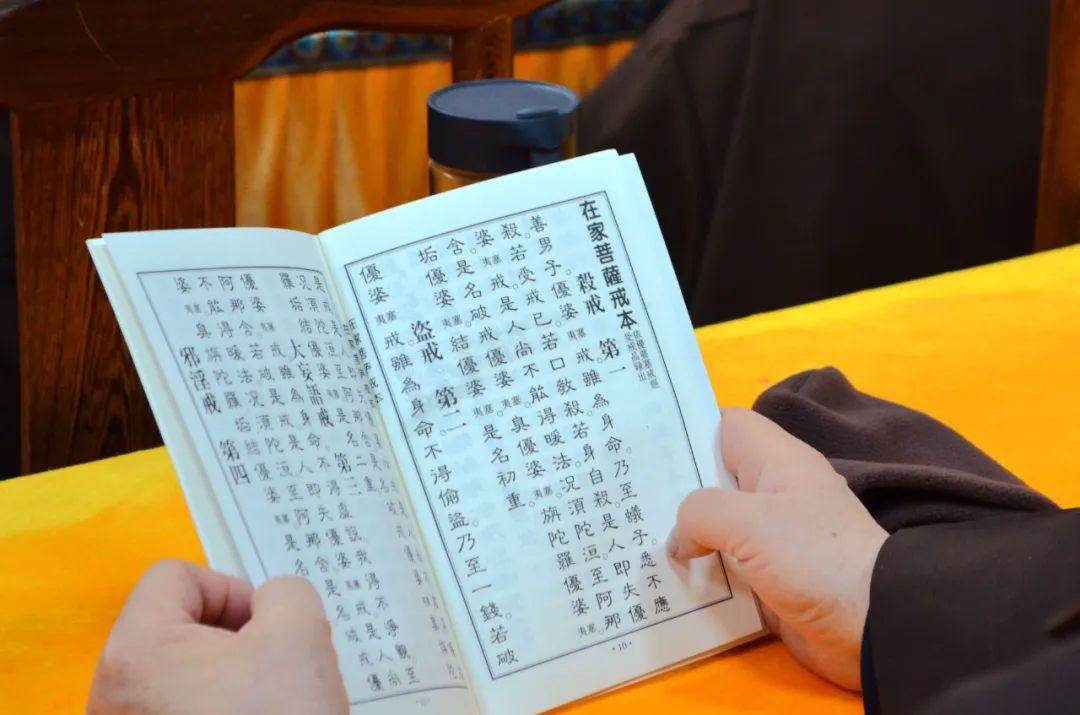 在家菩薩戒本 依優婆塞戒經受戒品錄出
殺戒 第一
善男子。優婆夷塞戒。雖為身命。乃至蟻子。悉不應
殺。若受戒已。若口教殺。若身自殺。是人即失優
婆夷塞戒。是人尚不能得暖法。況須陀洹。至阿那
含。是名破戒優婆夷塞。臭優婆夷塞。旃陀羅優婆夷塞。
垢優婆夷塞。結優婆夷塞。是名初重。
盜戒 第二
優婆夷塞戒。雖為身命。不得偷盜。乃至一錢。若破
·10·
大妄語戒 第三
優婆夷塞戒。雖為身命。不得虛說。我得不淨觀。至
阿那含。若破是戒。是人即失優婆夷塞戒。是人尚
不能得暖法。況須陀洹。至阿那含。是名破戒優
邪淫戒 第四